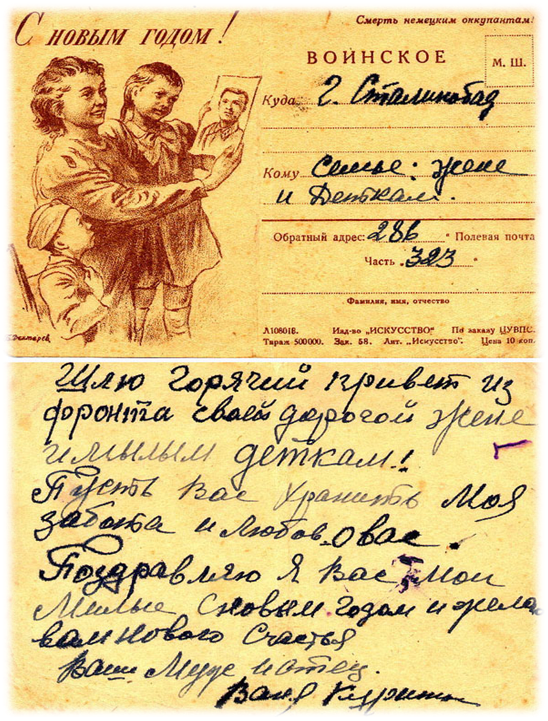 С новым годом!
Смерть немецким оккупантам!
ВОИНСКОЕ
М. Ш.
Куда г. Сталинобад
Кому Семье: жене
и Деткам.
Обратный адрес: 286 Полевая почта
Часть 323
Фамилия, имя, отчество
Л108018. Изд-во "ИСКУССТВО" По заказу ЦУВПС.
Тираж 500000. Зак. 58. Лит. „Искусство". Цена 10 коп.
Шлю горячий привет из
фронта своей дорогой жене
и милым деткам!
Пусть Вас хранить моя
забота и любов о вас.
Поздравляю я Вас мои
Милые с новым годом и желаю
вам нового счастья
Ваш Муж и отец.
Ваня